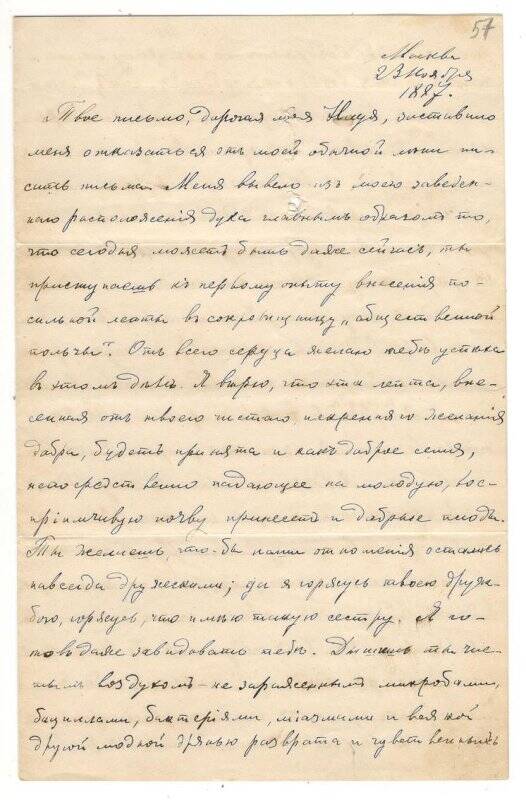 57
Москва
23 Ноября
1887.
Твое письмо, дорогая моя Нюця, заставило
меня отказаться отъ моей обычной лѣни пи-
сать письма. Меня вывело изъ моего заведен-
наго расположенія духа главнымъ образомъ то,
что сегодня, можетъ быть даже сейчасъ, ты
приступаешь къ первому опыту внесенія по-
сильной лепты въ сокровищницу „общественной
пользы“. Отъ всего сердца желаю тебѣ успѣха
въ этомъ дѣлѣ. Я вѣрю, что эта лепта, вне-
сенная отъ твоего чистаго искренняго желанія
добра, будетъ принята и какъ доброе семя,
непосредственно падающее на молодую, вос-
пріимчивую почву принесетъ и добрые плоды.
Ты желаешь, что-бы наши отношенія остались
навсегда дружескими; да я горжусь твоею друж-
бою, горжусь, что имѣю такую сестру. Я го-
товъ даже завидовать тебѣ. Дышишь ты чис-
тымъ воздухомъ – не зараженнымъ микробами,
бациллами, бактеріями, міазмами и всякой
другой модной дрянью разврата и чувственныхъ